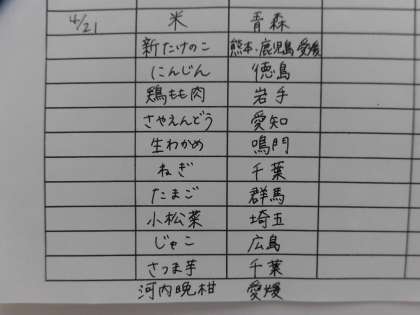 4/21 米 青森
新たけのこ 熊本・鹿児島 愛媛
にんじん 徳島
鶏もも肉 岩手
さやえんどう 愛知
生わかめ 鳴門
ねぎ 千葉
たまご 群馬
小松菜 埼玉
じゃこ 広島
さつま芋 千葉
河内晩柑 愛媛